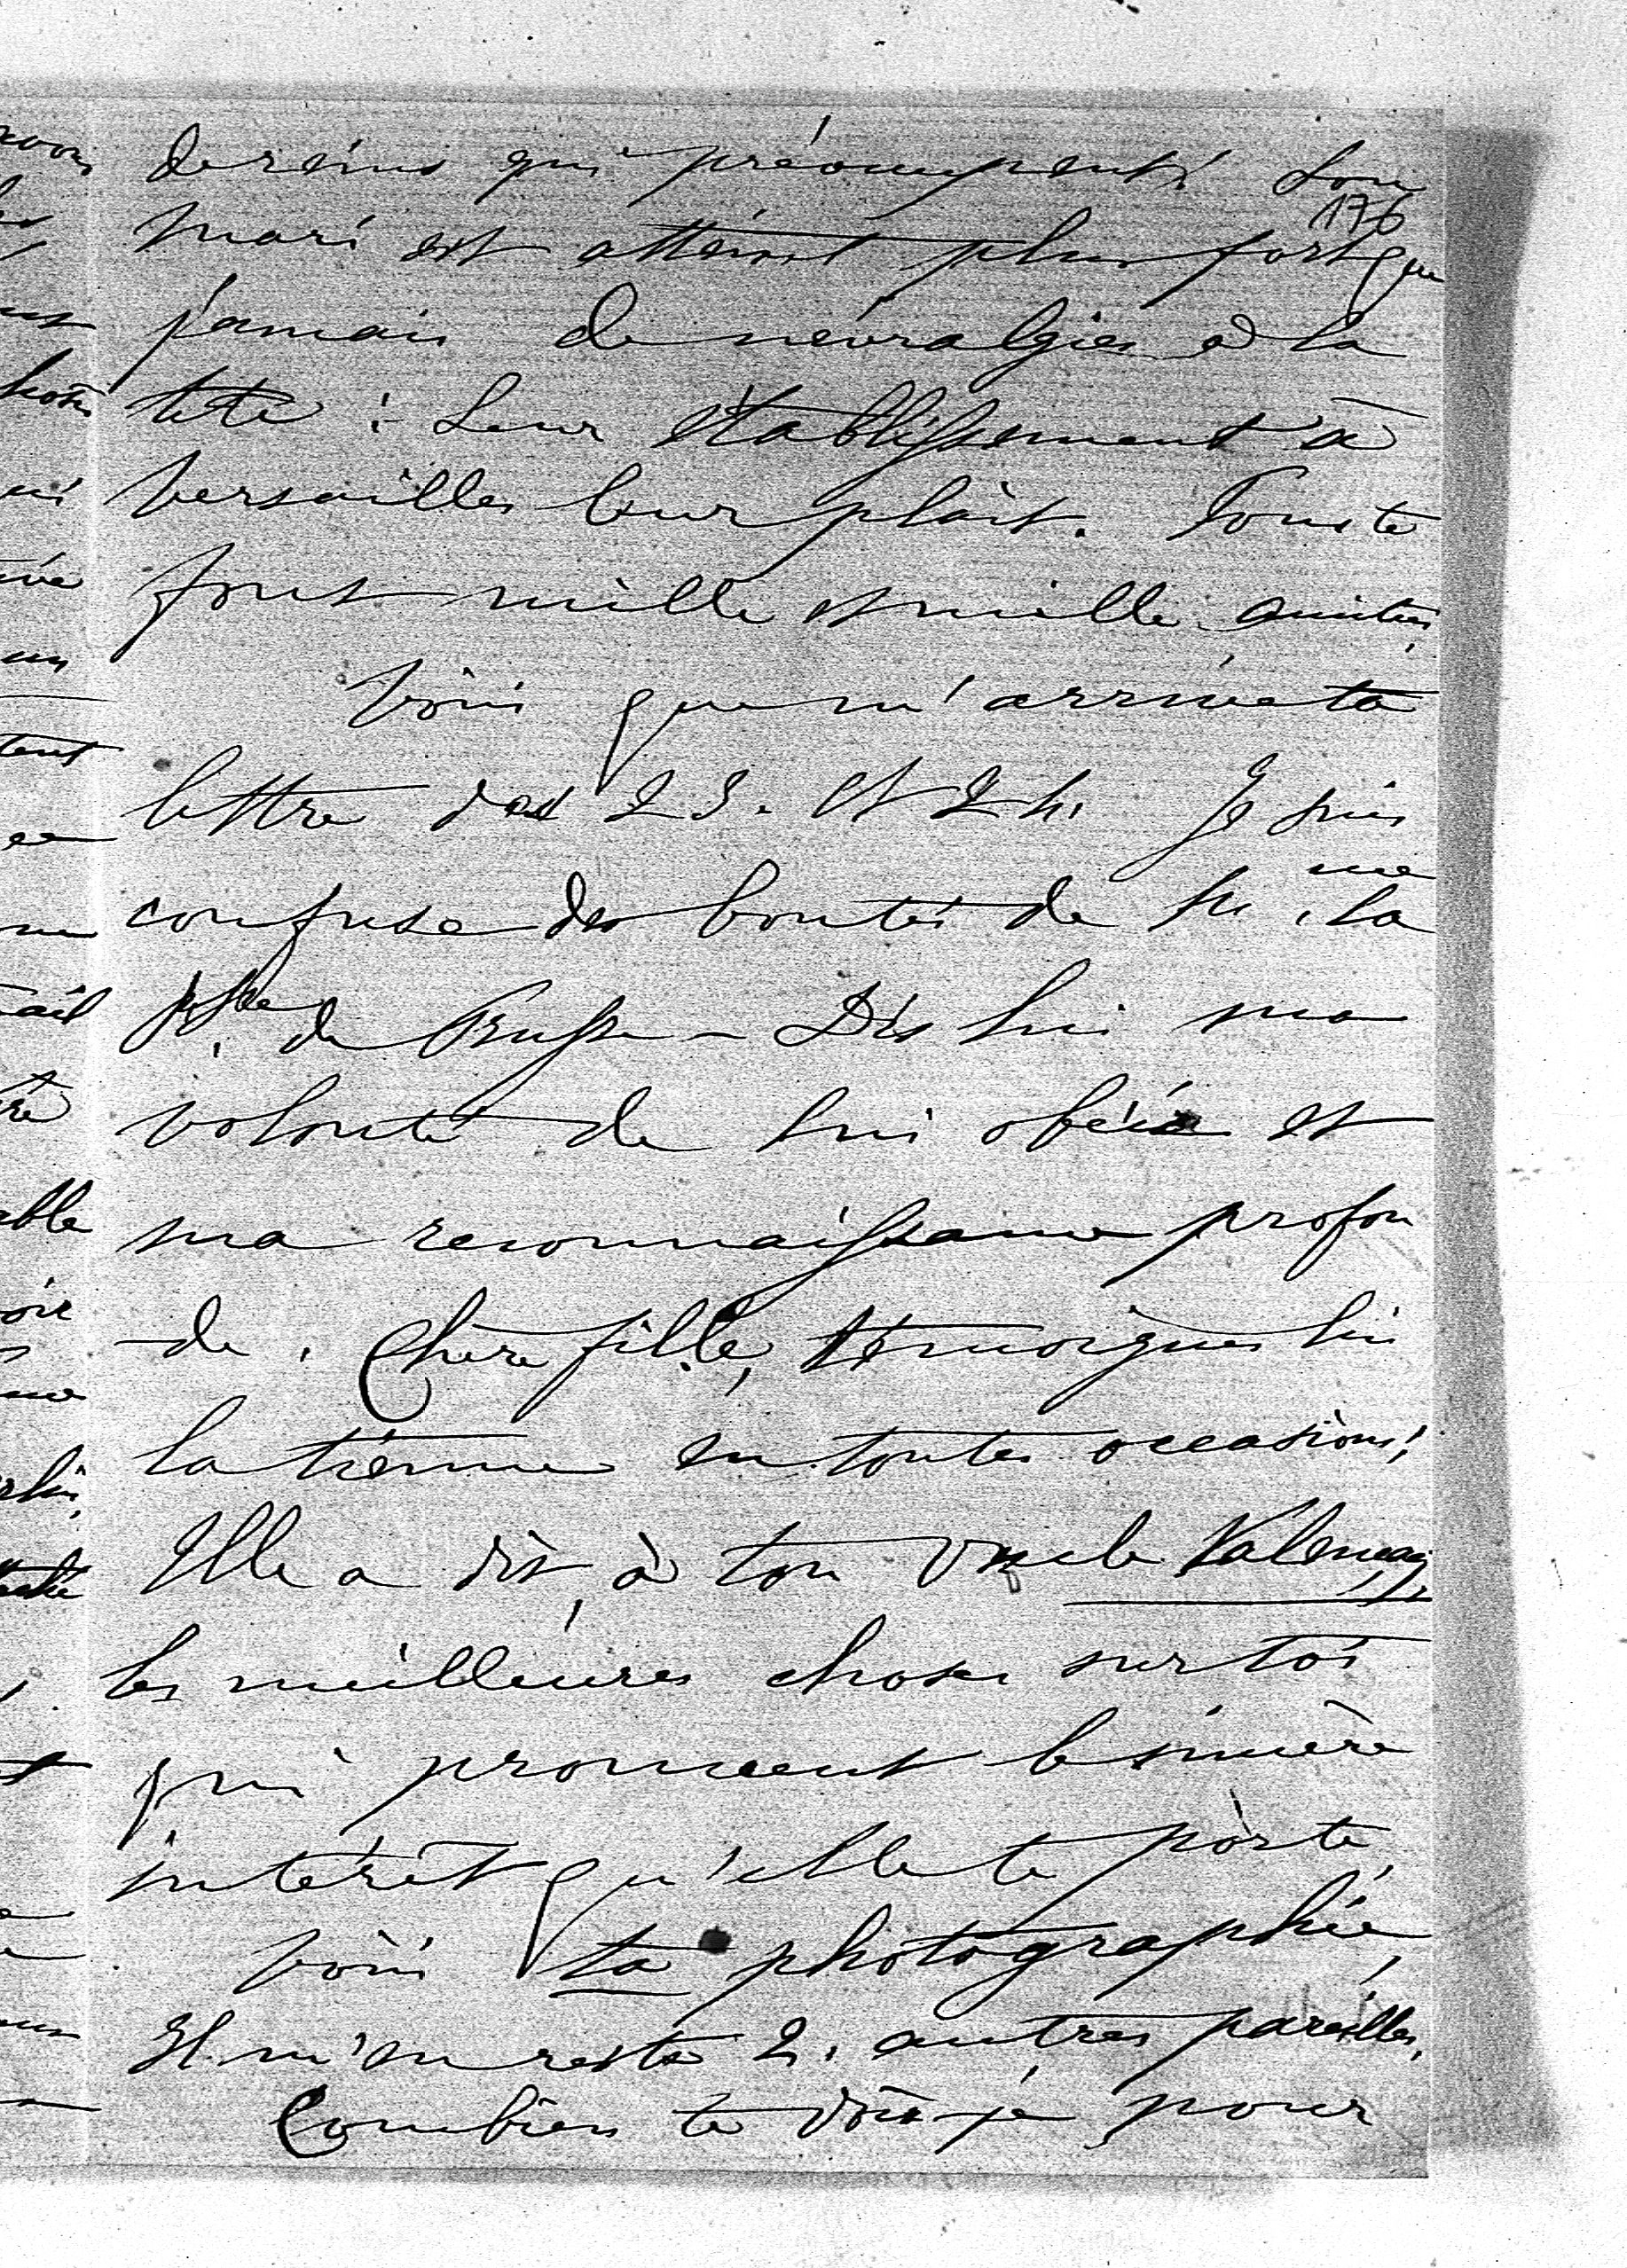 de reins qui préoccupent. Son
176
mari est atteint plus fort que
jamais de névralgies à la
tête : Leur établissement à
Versailles leur plait. Tous te
font mille et mille amitiés.
Voici que m'arrive ta
lettre des 23. et 24. Je suis
confuse des bontés de Mme la
Psse de Prusse – Dis lui ma
volonté de lui obéir et
ma reconnaissance profon
-de. Chère fille, témoignes lui
la tienne en toutes occasions.
Elle a dit à ton Oncle Valençay
les meilleures choses sur toi
qui prouvent le sincère
intérêt qu'elle te porte,
Voici ta photographie,
Il m'en reste 2. autres pareilles,
Combien te dois-je pour